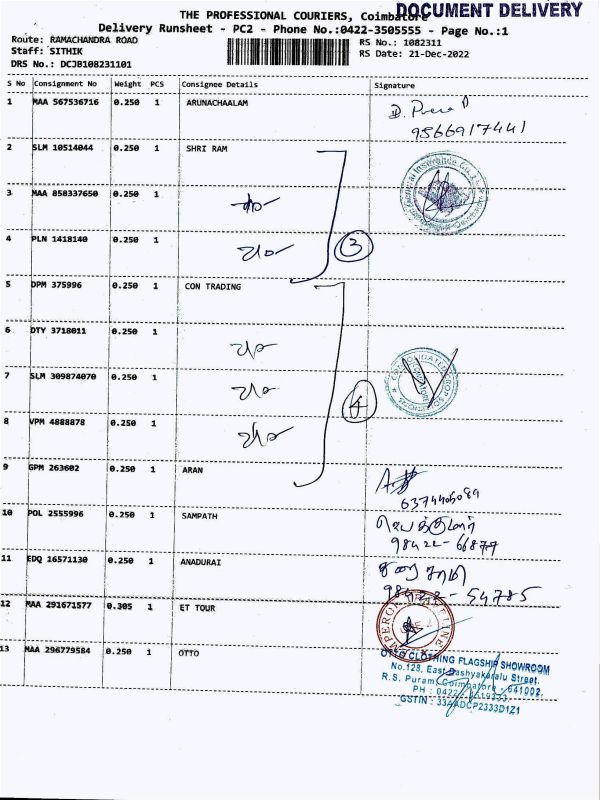 THE PROFESSIONAL COURIERS, Coimbatore
DOCUMENT DELIVERY
Delivery Runsheet - PC2 - Phone No.:0422-3505555 - Page No.:1
Route: RAMACHANDRA ROAD
RS No.: 1082311
Staff: SITHIK
RS Date: 21-Dec-2022
DRS No.: DCJB108231101
S No Consignment No Weight PCS Consignee Details Signature
1 MAA 567536716 0.250 1 ARUNACHAALAM
9566917441
2 SLM 10514044 0.250 1 SHRI RAM
3 MAA 858337650 0.250 1
4 PLN 1418140 0.250 1
3
5 DPM 375996 0.250 1 CON TRADING
6 DTY 3718011 0.250 1
7 SLM 309874070 0.250 1
4
8 VPM 4888878 0.250 1
9 GPM 263602 0.250 1 ARAN
10 POL 2555996 0.250 1 SAMPATH
98422-66877
11 EDQ 16571130 0.250 1 ANADURAI
துரை சாமி
98422-54785
12 MAA 291671577 0.305 1 ET TOUR
13 MAA 296779584 0.250 1 OTTO
OTTO CLOTHING FLAGSHIP SHOWROOM
No.128, East Bashyakaralu Street.
R.S. Puram, Coimbatore - 641002.
PH : 0422
GSTIN : 33AADCP2333D1Z1